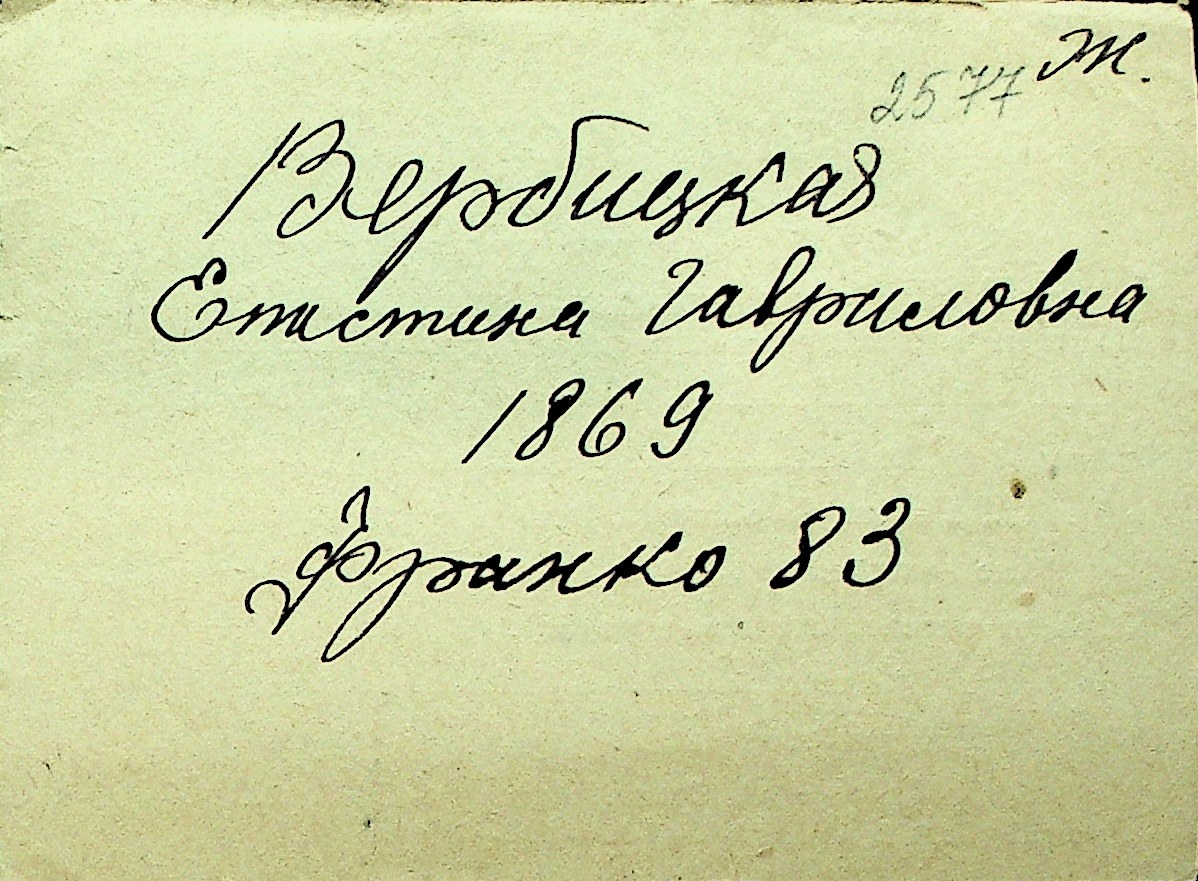 2577 Ж.
Вербицкая
Епистина Гавриловна
1869
Франко 83